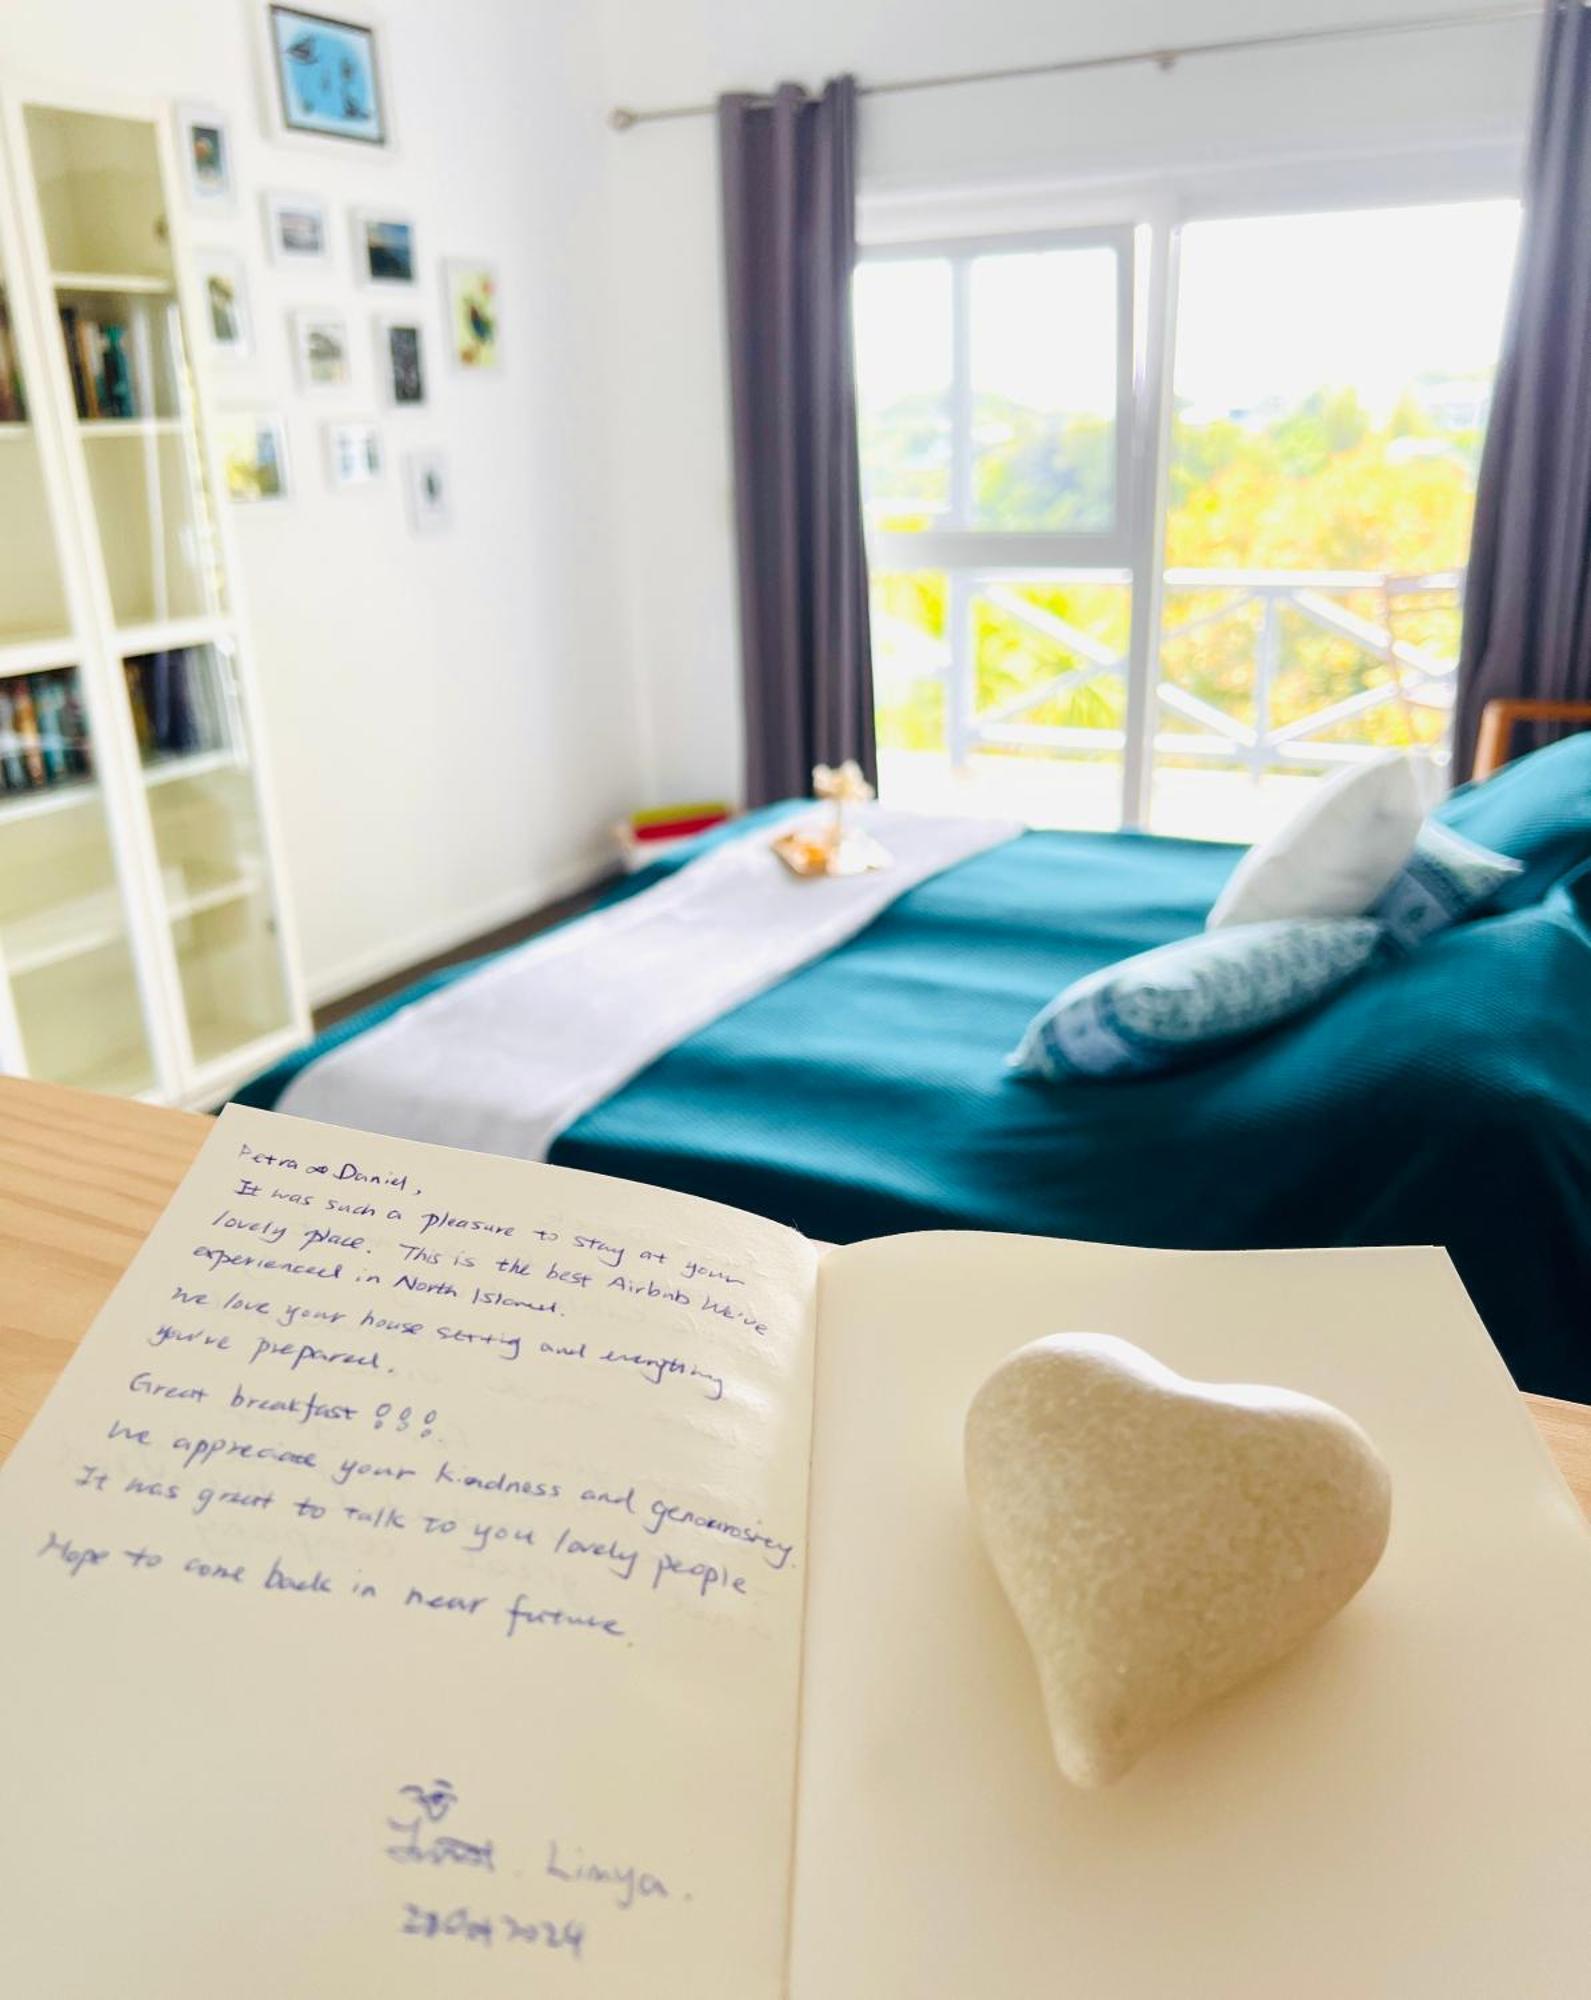 Petra & Daniel,
It was such a pleasure to stay at your
lovely place. This is the best Airbnb We've
experienced in North Island.
We love your house setting and everything
you've prepared.
Great breakfast !!!
We appreciate your kindness and
It was great to talk to you lovely people
Hope to come back in near future.
Linya.
2024